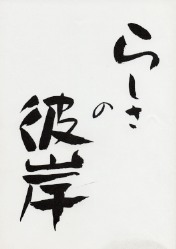 らしさ
の
彼岸